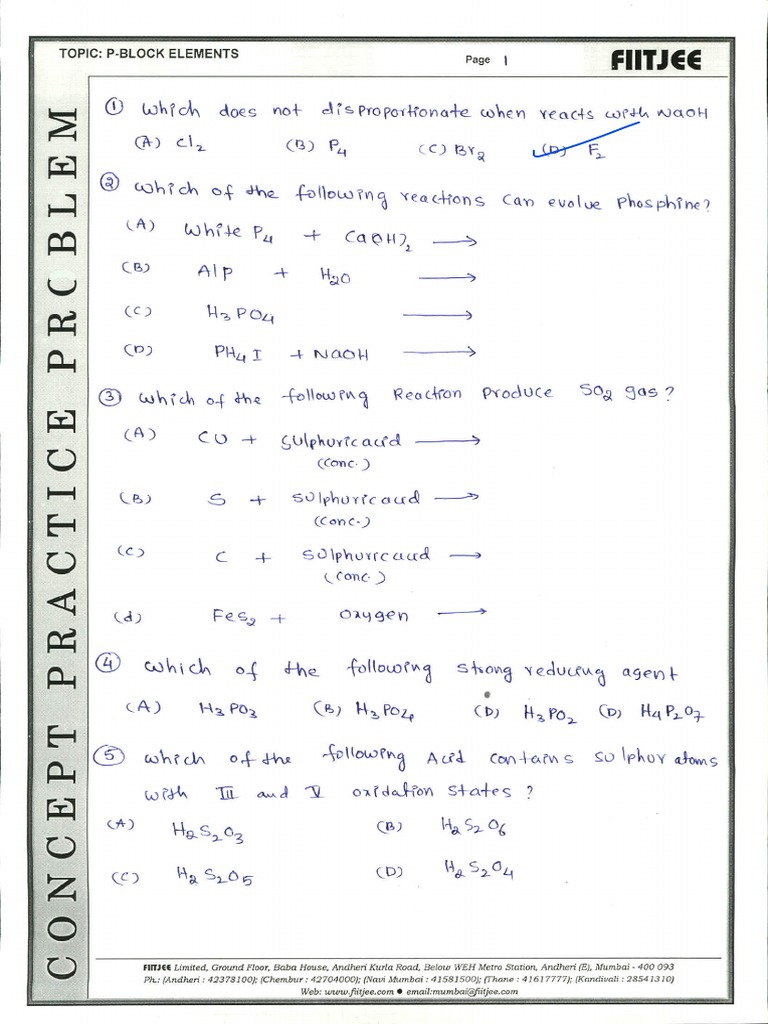 TOPIC: P-BLOCK ELEMENTS
Page 1
FIITJEE
CONCEPT PRACTICE PROBLEM
① Which does not disproportionate when reacts with NaOH
(A) Cl₂ (B) P₄ (C) Br₂ (D) F₂
② Which of the following reactions can evolve Phosphine?
(A) White P₄ + Ca(OH)₂ ⟶
(B) AlP + H₂O ⟶
(C) H₃PO₄ ⟶
(D) PH₄I + NaOH ⟶
③ Which of the following Reaction Produce SO₂ gas?
(A) Cu + Sulphuric acid ⟶
(conc.)
(B) S + Sulphuric acid ⟶
(conc.)
(C) C + Sulphuric acid ⟶
(conc.)
(d) FeS₂ + Oxygen ⟶
④ Which of the following strong reducing agent
(A) H₃PO₃ (B) H₃PO₄ (D) H₃PO₂ (D) H₄P₂O₇
⑤ Which of the following Acid contains sulphur atoms
with III and V oxidation states ?
(A) H₂S₂O₃ (B) H₂S₂O₆
(C) H₂S₂O₅ (D) H₂S₂O₄
FIITJEE Limited, Ground Floor, Baba House, Andheri Kurla Road, Below WEH Metro Station, Andheri (E), Mumbai - 400 093
Ph.: (Andheri : 42378100); (Chembur : 42704000); (Navi Mumbai : 41581500); (Thane : 41617777); (Kandivali : 28541310)
Web: www.fiitjee.com ● email:mumbai@fiitjee.com